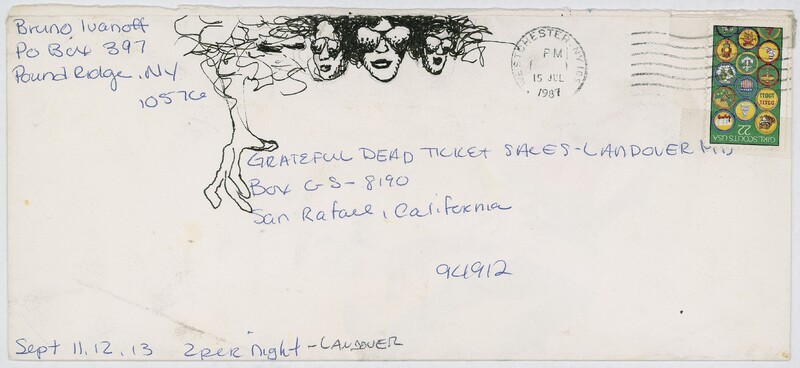 Bruno Ivanoff
Po Box 397
Pound Ridge, NY
10576
WESTCHESTER, NY
PM
15 JUL
1987
GIRL SCOUTS USA
22
GRATEFUL DEAD TICKET SALES-LANDOVER MD
Box GS-8190
San Rafael, California
94912
Sept 11, 12, 13 2 per night - LANDOVER